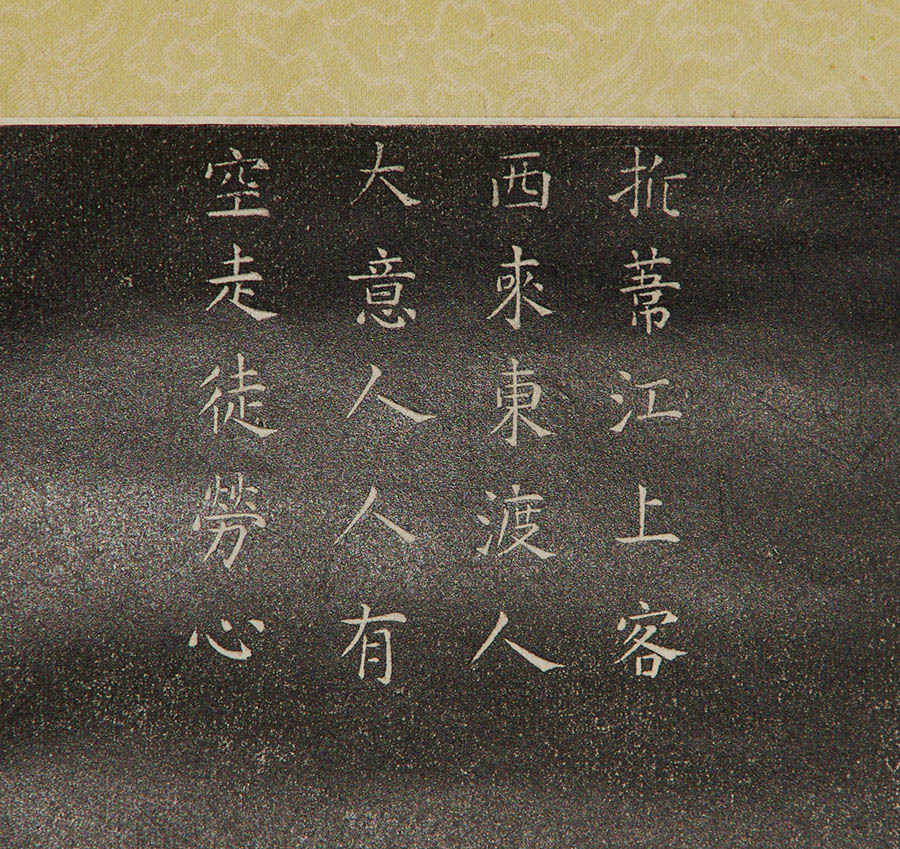 折葦江上客
西來東渡人
大意人人有
空走徒勞心